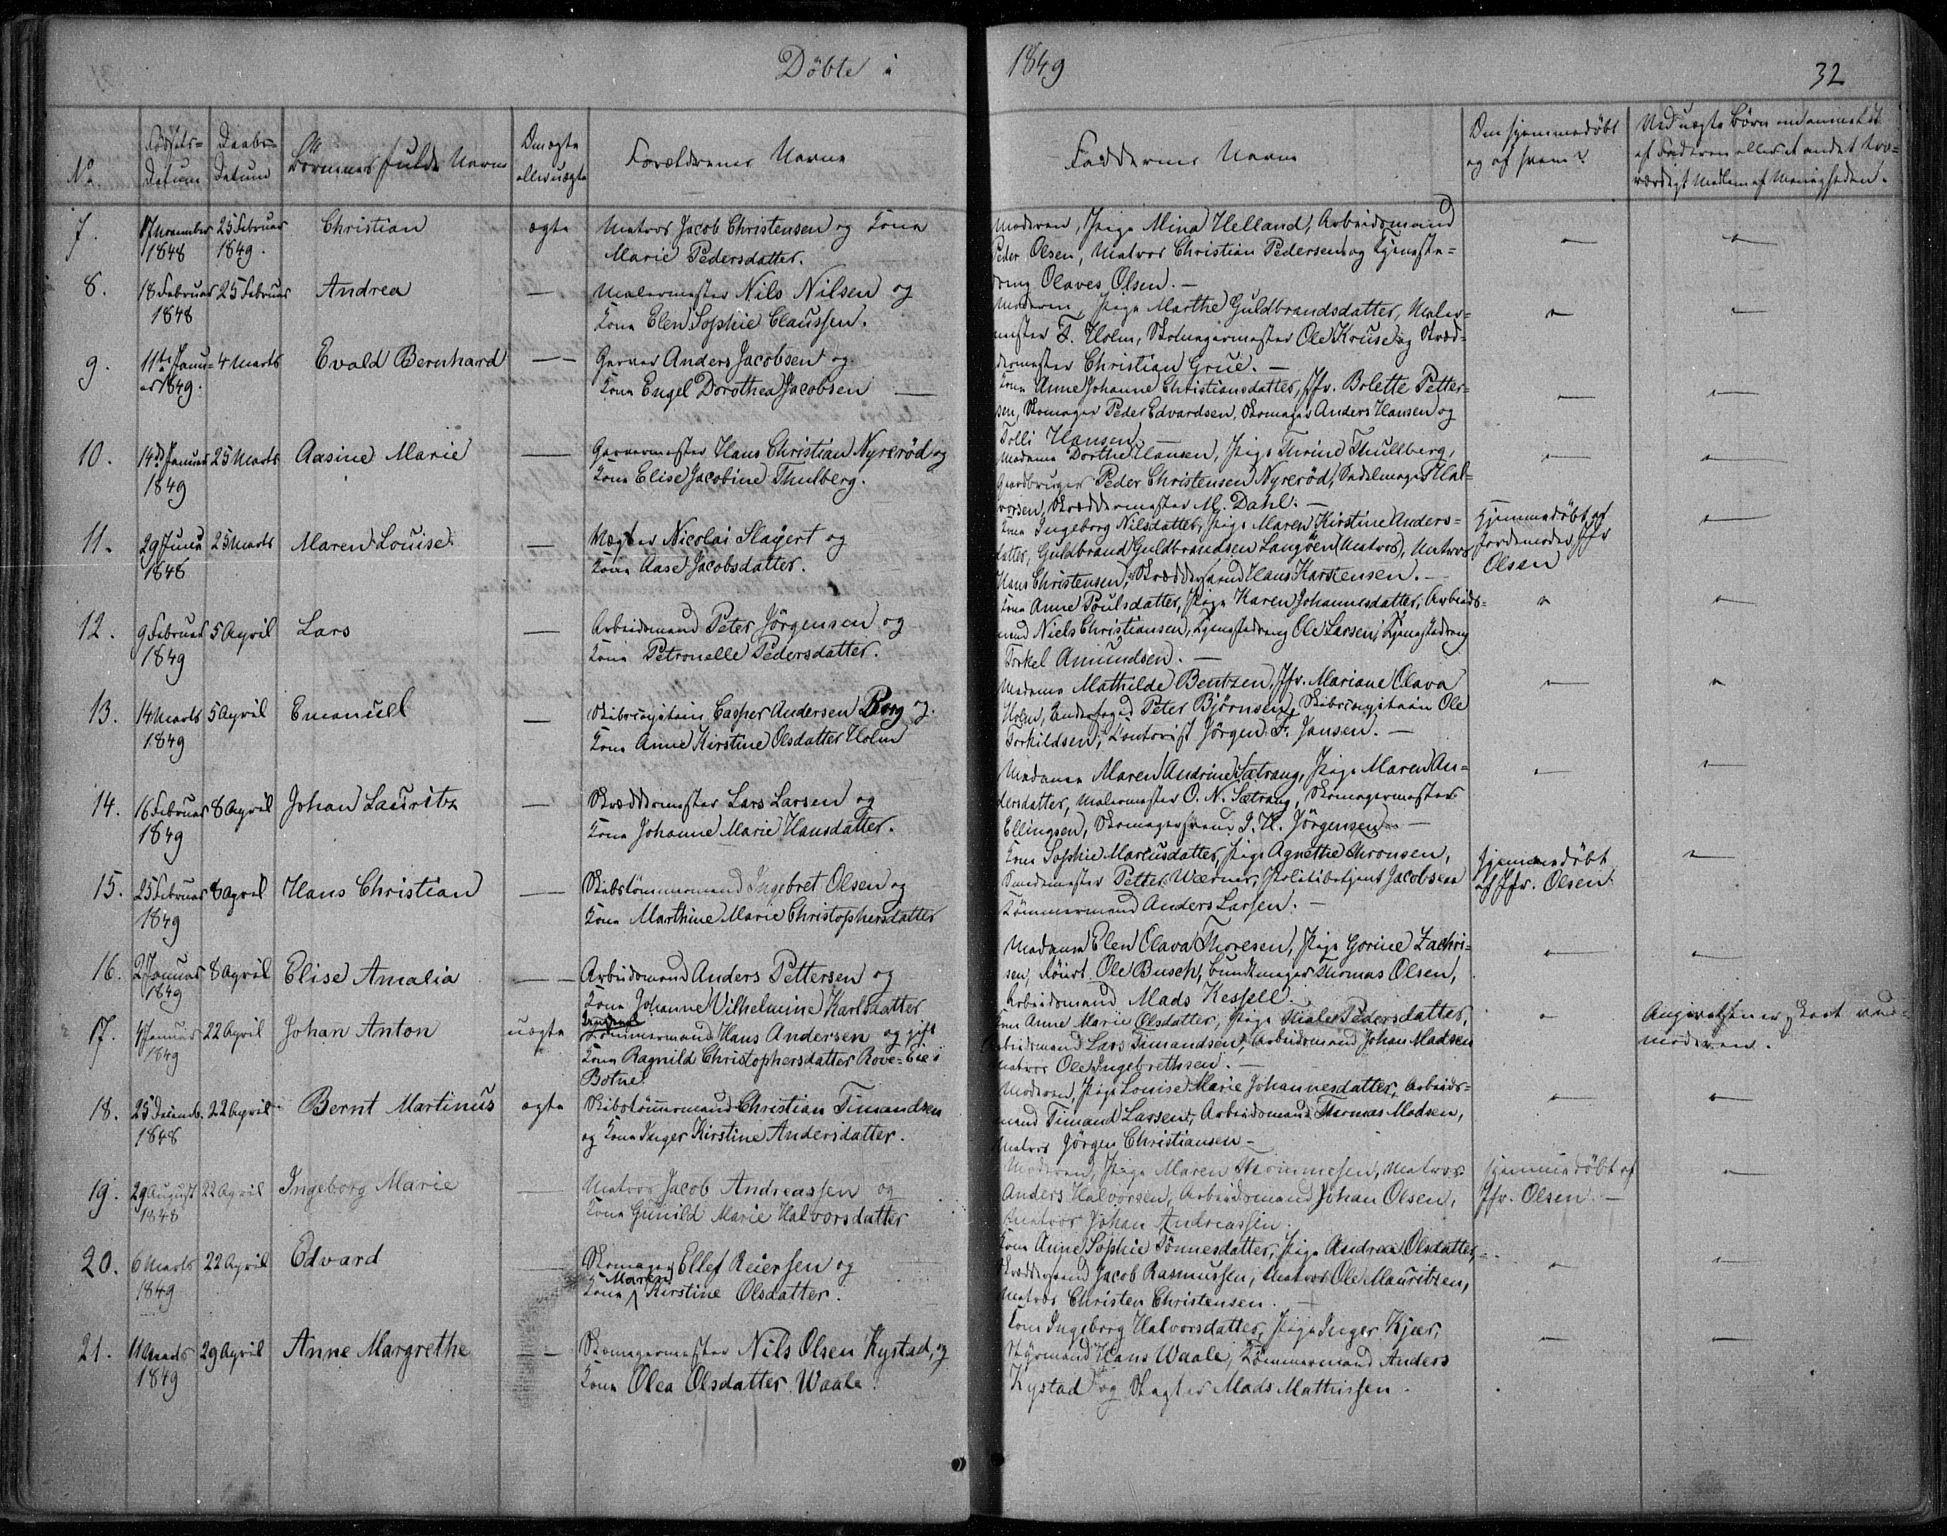 Döbte i 1849
32
No
Fødsels-Datum
Daabs-Datum
Børnenes fulde Navne
Om ægte eller uægte
Forældrenes Navne
Faddernes Navne
Om hjemmedøbt og af hvem?
Ved uægte Børn
af Faderen eller et andet troværdigt Medlem af Menigheden.
7.
17 November 1848
25 Februar 1849.
Christian
ægte
Matros Jacob Christensen og Kone
Marie Pedersdatter.
Moderen, Pige Mina Helland, Arbeidsmand
Peder Olsen, Matros Christian Pedersen og Tjeneste-
dreng Olaves Olsen. —
8.
18 Februar 1848
25 Februar
Andrea
—
Malermester Nils Nilsen og
Kone Elen Sophie Claussen.
Moderen, Pige Marthe Guldbrandsdatter, Maler-
mester F. Holm, Skomagermester Ole Kruse og Skræd-
dermester Christian Grue. —
9.
11te Janu-
ar 1849.
4 Marts
Evald Bernhard
—
Garver Anders Jacobsen og
Kone Engel Dorothea Jacobsen
Kone Anne Johanne Christiansdatter, Jfr. Bolette Petter-
sen, Skomager Peder Edvardsen, Skomager Anders Hansen og
Tolli Hansen
10.
14de Januar 1849
25 Marts
Aasine Marie
—
Garvermester Hans Christian Nyrerød og
Kone Elise Jacobine Thulberg.
Madame Dorthe Hansen, Pige Thrine Thullberg,
Gaardbruger Peder Christensen Nyrerød, Sadelmager Hal-
vorsen, Skræddermester M. Dahl. —
11.
29 Juni 1848
25 Marts
Maren Louise
—
Vægter Nicolai Slayert og
Kone Aase Jacobsdatter.
Kone Ingeborg Nilsdatter, Pige Maren Kirstine Anders-
datter, Guldbrand Guldbrandsen Langöen (Matros), Matros
Hans Christensen, Skræddersvend Hans Karstensen. —
Hjemmedøbt af
Jordemoder Jfr
Olsen
12.
9 Februar 1849
5 April
Lars
—
Arbeidsmand Peter Jörgensen og
Kone Petronelle Pedersdatter.
Kone Anne Poulsdatter, Pige Karen Johannesdatter, Arbeids-
mand Niels Christiansen, Tjenestedreng Ole Larsen, Tjenestedreng
Torkel Amundsen. —
13.
14 Marts 1849
5 April
Emanuel
—
Skibscapitain Casper Andersen Borg og
Kone Anne Kirstine Olsdatter Holm
Madame Mathilde Bentzen, Jfr. Mariane Olava
Holm, Peter Björnsen, Skibscapitain Ole
Torkildsen, Contorist Jörgen F. Jansen. —
14.
16 Februar 1849
8 April
Johan Lauritz
—
Skræddermester Lars Larsen og
Kone Johanne Marie Hansdatter.
Madame Maren Andrine Sætrang, Pige Maren An-
dersdatter, Malermester O. N. Sætrang, Skomagermester
Ellingsen, Skomagersvend J. H. Jörgensen —
15.
25 Februar 1849
8 April
Hans Christian
—
Skibstömmermand Ingebret Olsen og
Kone Marthine Marie Christophersdatter
Kone Sophie Marcusdatter, Pige Agnethe Aronsen,
Smedemester Petter Wærner, Politibetjent Jacobsen
Tömmermand Anders Larsen. —
Hjemmedøbt
af Jfr. Olsen
16.
2 Januar 1849
8 April
Elise Amalia
—
Arbeidsmand Anders Pettersen og
Kone Johanne Vilhelmine Karlsdatter
Madame Elen Olava Thoresen, Pige Gorine Zachri-
sen, Ole Busch, Bundtmager Thomas Olsen,
Arbeidsmand Mads Kessell.
17.
4 Januar 1849
22 April
Johan Anton
uægte
Tömmermand Hans Andersen og gift
Kone Ragnild Christophersdatter Rove-Eie i
Botne
Kone Anne Marie Olsdatter, Pige Pedersdatter,
Arbeidsmand Lars Timandsen, Arbeidsmand Johan Madsen
Matros Ole Ingebrethsen. —
Angivelsen er skeet ved
Moderen.
18.
25 Decemb. 1848
22 April
Bernt Martinus
ægte
Skibstömmermand Christian Timandsen
og Kone Inger Kirstine Andersdatter.
Moderen, Pige Louise Marie Johannesdatter, Arbeids-
mand Timand Larsen, Arbeidsmand Thomas Madsen,
Matros Jörgen Christiansen —
19.
29 August 1848
22 April
Ingeborg Marie
—
Matros Jacob Andreassen og
Kone Gunild Marie Halvorsdatter
Moderen, Pige Maren, Matros
Anders Halvorsen, Arbeidsmand Johan Olsen,
Matros Johan Andreassen.
Hjemmedøbt af
Jfr. Olsen. —
20.
6 Marts 1849
22 April
Edvard
—
Skomager Ellef Reiersen og
Kone Maren Kirstine Olsdatter.
Kone Anne Sophie Tönnesdatter, Pige Andrea Olsdatter,
Skræddersvend Jacob Rasmussen, Matros Ole Mauritzen,
Matros Christen Christensen.
21.
11 Marts 1849
29 April
Anne Margrethe
—
Skomagermester Nils Olsen Kystad, og
Kone Olea Olsdatter Waale.
Kone Ingeborg Halvorsdatter, Pige Inger Kjær,
Styrmand Hans Waale, Tömmermand Anders
Kystad og Slagter Mads Mathissen.